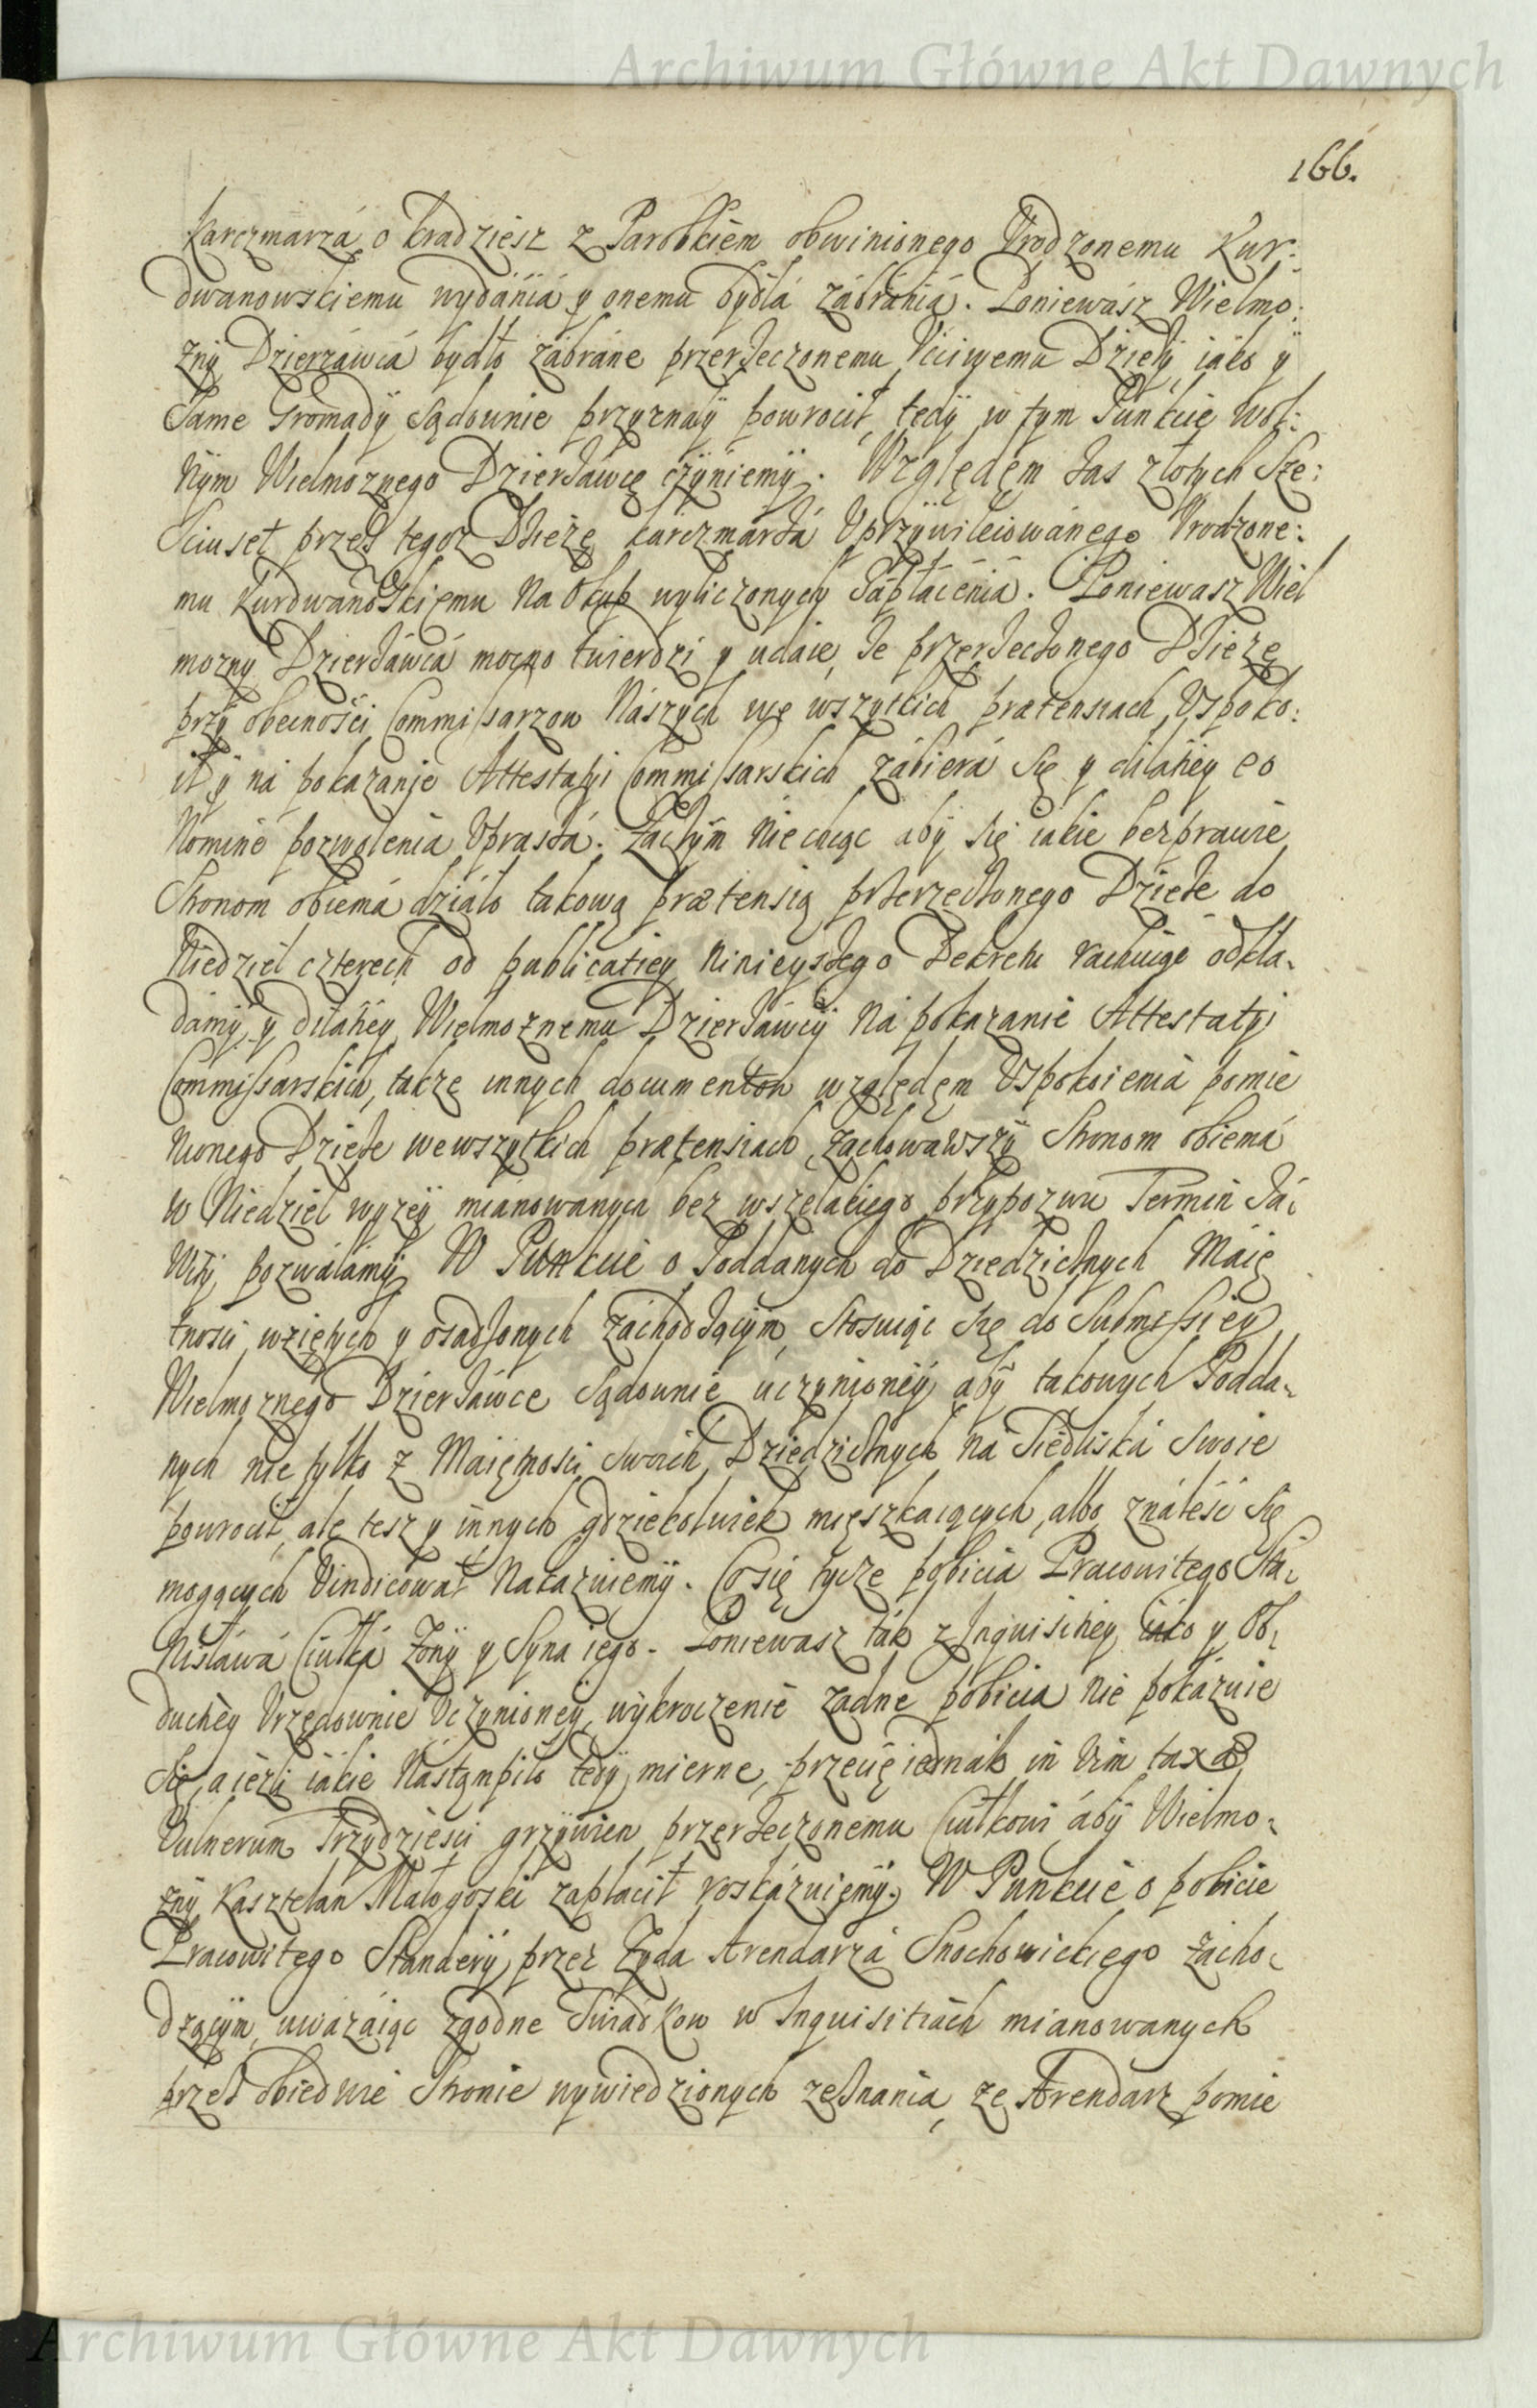 Archiwum Główne Akt Dawnych
166.
karczmarzá o kradziesz z Parobkiem obwinionego Vrodzonemu Kur:
dwanowskiemu wydánia y onemu bydłá zábránia. Poniewász Wielmo:
zny Dzierzáwcá bydło zábráne przerzeczonemu Vćciwemu Dzieży iáko y
Same Gromady Sądownie przyznały powrocił, tedy w tym Punkcie wol:
nym Wielmoznego Dzierżáwcę czyniemy. Względem zas złotych Sze:
sciuset przez tegoz Dzieżę karczmarzá Vprzywileiowánego Vrodzone:
mu Kurdwanowskiemu na Okup wyliczonych zápłácenia. Poniewasz Wiel
mozny Dzierżáwcá mocno twierdzi y udaie, że przerzeczonego Dzieżę
przy obecności Commissarzow Nászych we wszytkich prætensiach Vspoko:
ił y ná pokazanie Attestatyi Commissarskich zábierá się y dilátiey eo
Nomine pozwolenia Vprasza. Zaczym niechcąc aby się iakie bezprawie
Stronom obiemá działo takową prætensią przerzeczonego Dzieże do
Niedziel czterech od publicatiey ninieyszego Dekretu rachuiąc odkła-
damy, y dilátiey Wielmoznemu Dzierżáwcy ná pokazanie Attestatyi
Commissarskich, takze innych documentow względem Vspokoienia pomie
nionego Dzieże we wszytkich prætensiach, zachowawszy Stronom obiemá
w Niedziel wyzey mianowanych bez wszelakiego przypozwu Termin zá-
wity pozwalamy. W Punkcie o Poddanych do Dziedzicznych Maię
tnosci wziętych y osadzonych zachodzącym, stosuiąc się do Submissiey
Wielmoznego Dzierżáwce Sądownie uczynioney, aby takowych Podda-
nych nie tylko z Maiętnosci swoich Dziedzicznych na Siedliska swoie
powrocił, ale tesz y innych gdziekolwiek mięszkaiących, albo ználeść się
mogących Vindicował nakazuiemy. Co się tycze pobicia Pracowitego Sta-
nisławá Ciułká Zony y Syna iego. Poniewasz ták z Inquisitiey iáko y Ob-
ductiey Vrzędownie Vczynioney, wykroczenie zadne pobicia nie pokázuie
się, a iezli iákie nástąmpiło tedy mierne, przecię iednák in vim taxæ
Vulnerum Trzydzieści grzywien przerzeczonemu Ciułkowi áby Wielmo-
zny Kasztelan Małogoski zapłacił roskázuiemy. W Punkcie o pobicie
Pracowitego Standery przez Zyda Arendarzá Snochowickiego zácho-
dzącym, uwazáiąc zgodne Swiadkow w Inquisitiách mianowanych
przez obiedwie Stronie wywiedzionych zeznania, ze Arendarz pomie
Archiwum Główne Akt Dawnych